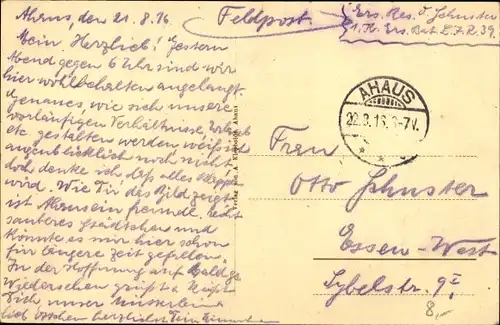 Ahaus, den 21.8.16
Feldpost.
Ers. Res. O. Johnster
1. K. Ers. Bat. L.I.R. 39.
Mein Herzlieb! Gestern
Abend gegen 6 Uhr sind wir
hier wohlbehalten angelangt.
Genaues, wie sich unsere
vorläufigen Verhältnisse, Urlaub
etc. gestalten werden weiß ich
augenblicklich noch nicht
doch denke ich daß alles
wird. Wie Dir das Bild zeigt
ist Ahaus ein freundl. recht
sauberes Städtchen und
könnte es mir hier schon
für längere Zeit gefallen.
In der Hoffnung auf baldiges
Wiedersehen grüßt & küßt
Dich unser
herzlichst Dein
AHAUS
22.8.16. 6-7V.
Frau
Otto Johnster
Essen-West
Sybelstr. 9I
8,-